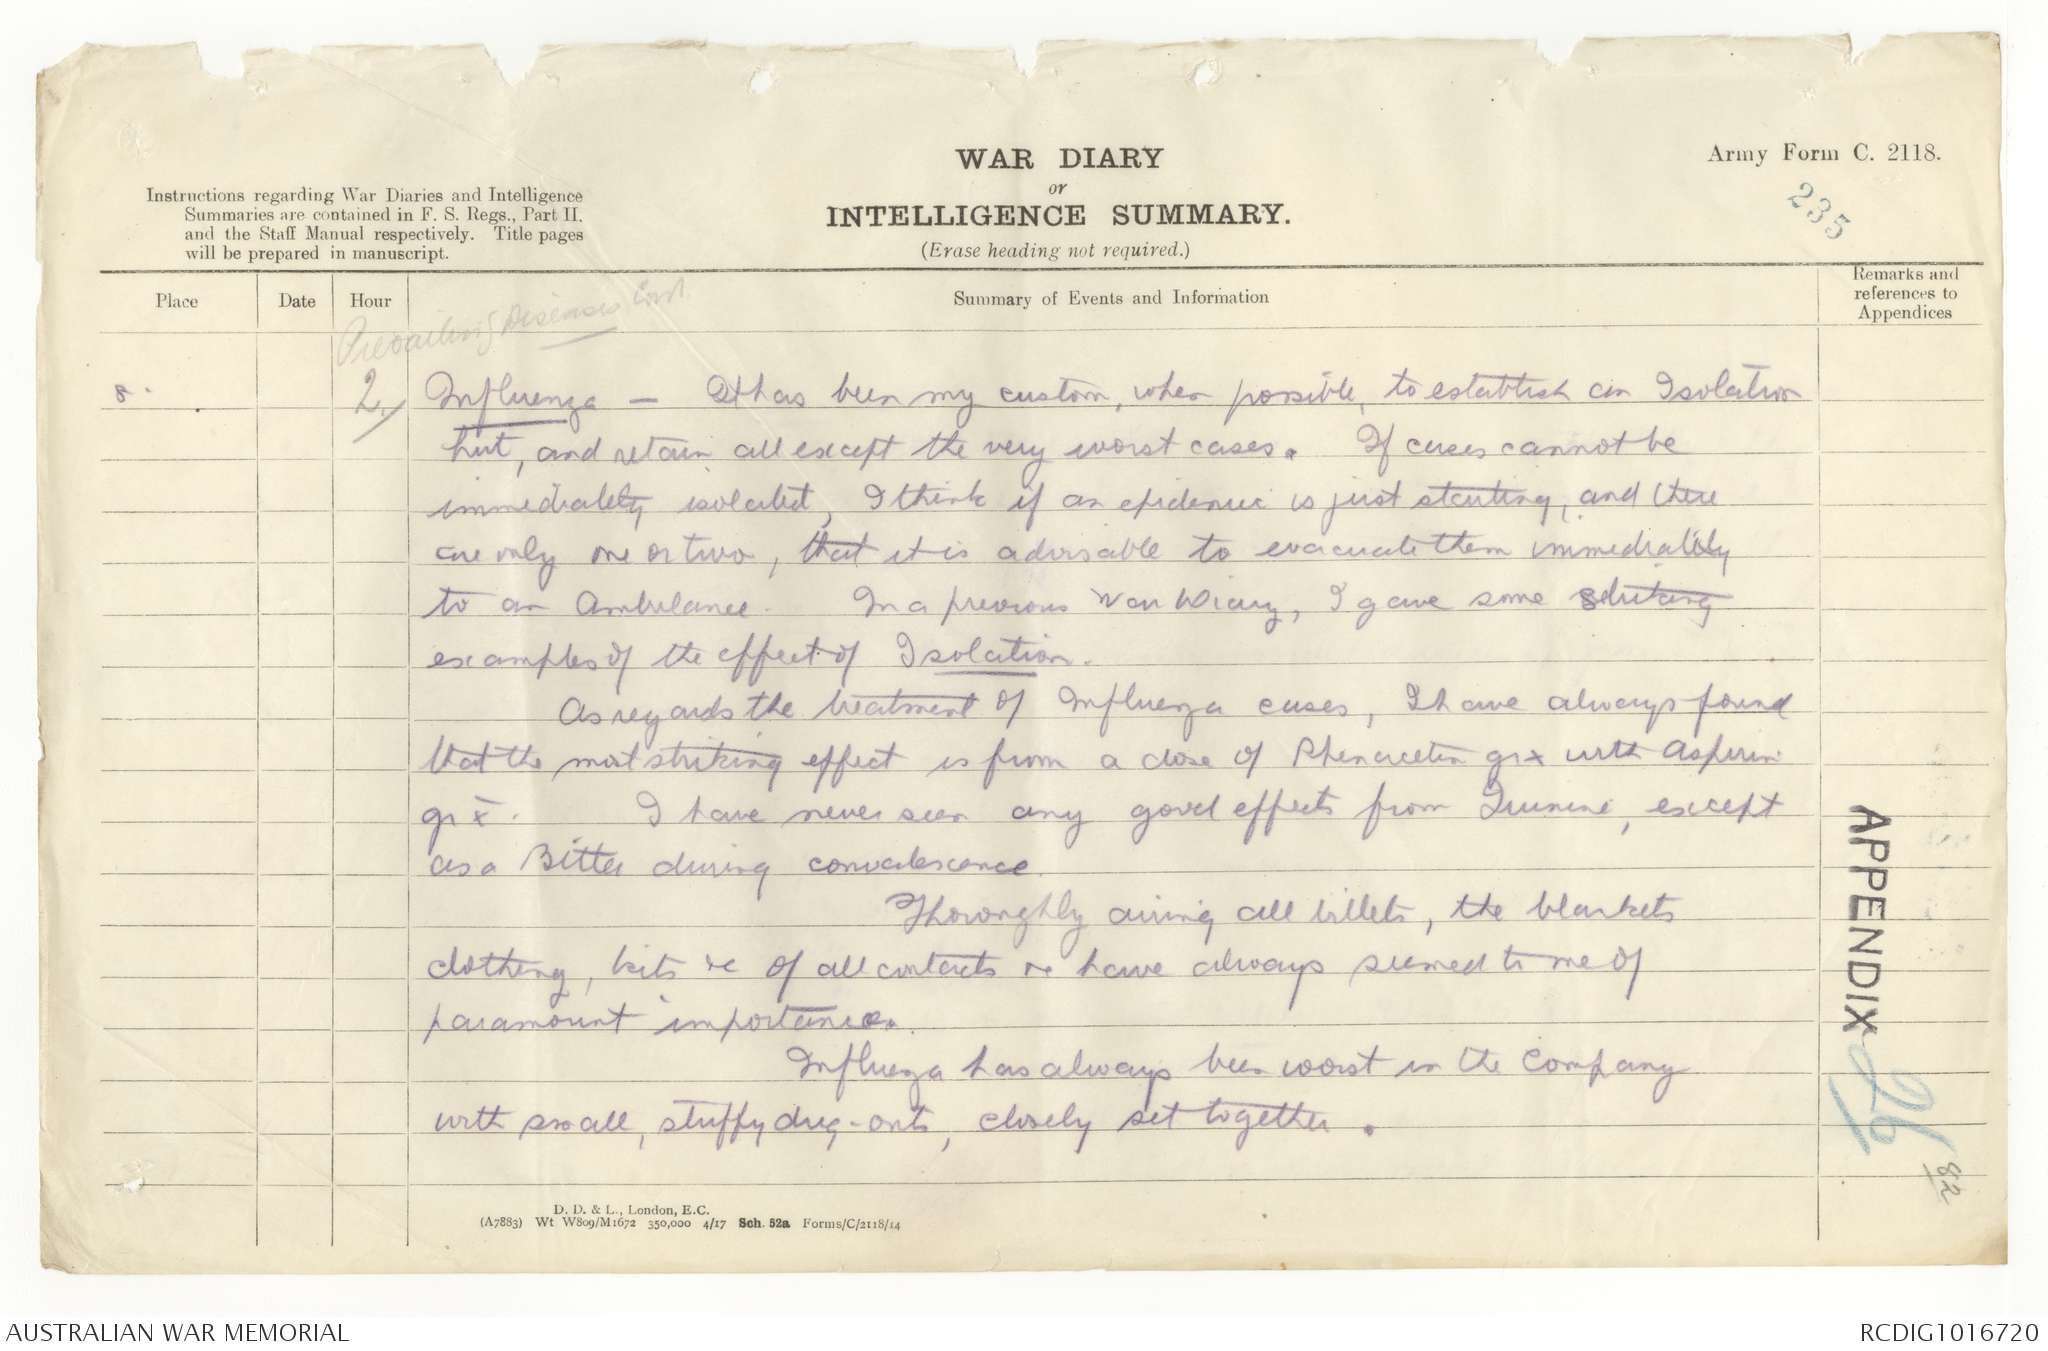 WAR DIARY
or
INTELLIGENCE SUMMARY.
(Erase heading not required.)
Army Form C. 2118.
235
Instructions regarding War Diaries and Intelligence
Summaries are contained in F. S. Regs., Part II.
and the Staff Manual respectively. Title pages
will be prepared in manuscript.
Place
Date
Hour
Summary of Events and Information
Remarks and
references to
Appendices
Prevailing Diseases Cont.
8.
2/ Influenza — It has been my custom, when possible, to establish an Isolation
hut, and retain all except the very worst cases. If cases cannot be
immediately isolated, I think if an epidemic is just starting, and there
are only one or two, that it is advisable to evacuate them immediately
to an Ambulance. In a previous War Diary, I gave some striking
examples of the effect of Isolation.
As regards the treatment of Influenza cases, I have always found
that the most striking effect is from a dose of Phenacetin gr x with Aspirin
gr x. I have never seen any good effects from Quinine, except
as a Bitter during convalescence.
Thoroughly airing all billets, the blankets
clothing, kits &c of all contacts &c have always seemed to me of
paramount importance.
Influenza has always been worst in the Company
with small, stuffy dug-outs, closely set together.
APPENDIX 26
82
D. D. & L., London, E.C.
(A7883) Wt W809/M1672 350,000 4/17 Sch. 52a Forms/C/2118/14
AUSTRALIAN WAR MEMORIAL
RCDIG1016720